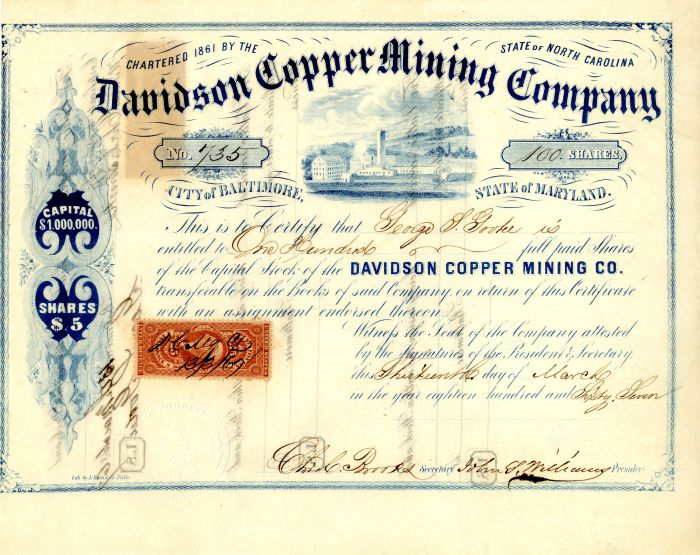 CHARTERED 1861 BY THE STATE OF NORTH CAROLINA
Davidson Copper Mining Company
No. 735
100 SHARES.
CITY of BALTIMORE, STATE of MARYLAND.
CAPITAL
$1,000,000.
SHARES
$.5
This is to Certify that George S. is
entitled to One Hundred full paid Shares
of the Capital Stock of the DAVIDSON COPPER MINING CO.
transferable on the Books of said Company on return of this Certificate
with an assignment endorsed thereon.
Witness the Seal of the Company attested
by the signatures of the President & Secretary
this Thirteenth day of March
in the year eighteen hundred and Sixty Seven
Chas. C. Brooks Secretary John S. Williams President
Lith. by A. Balto.